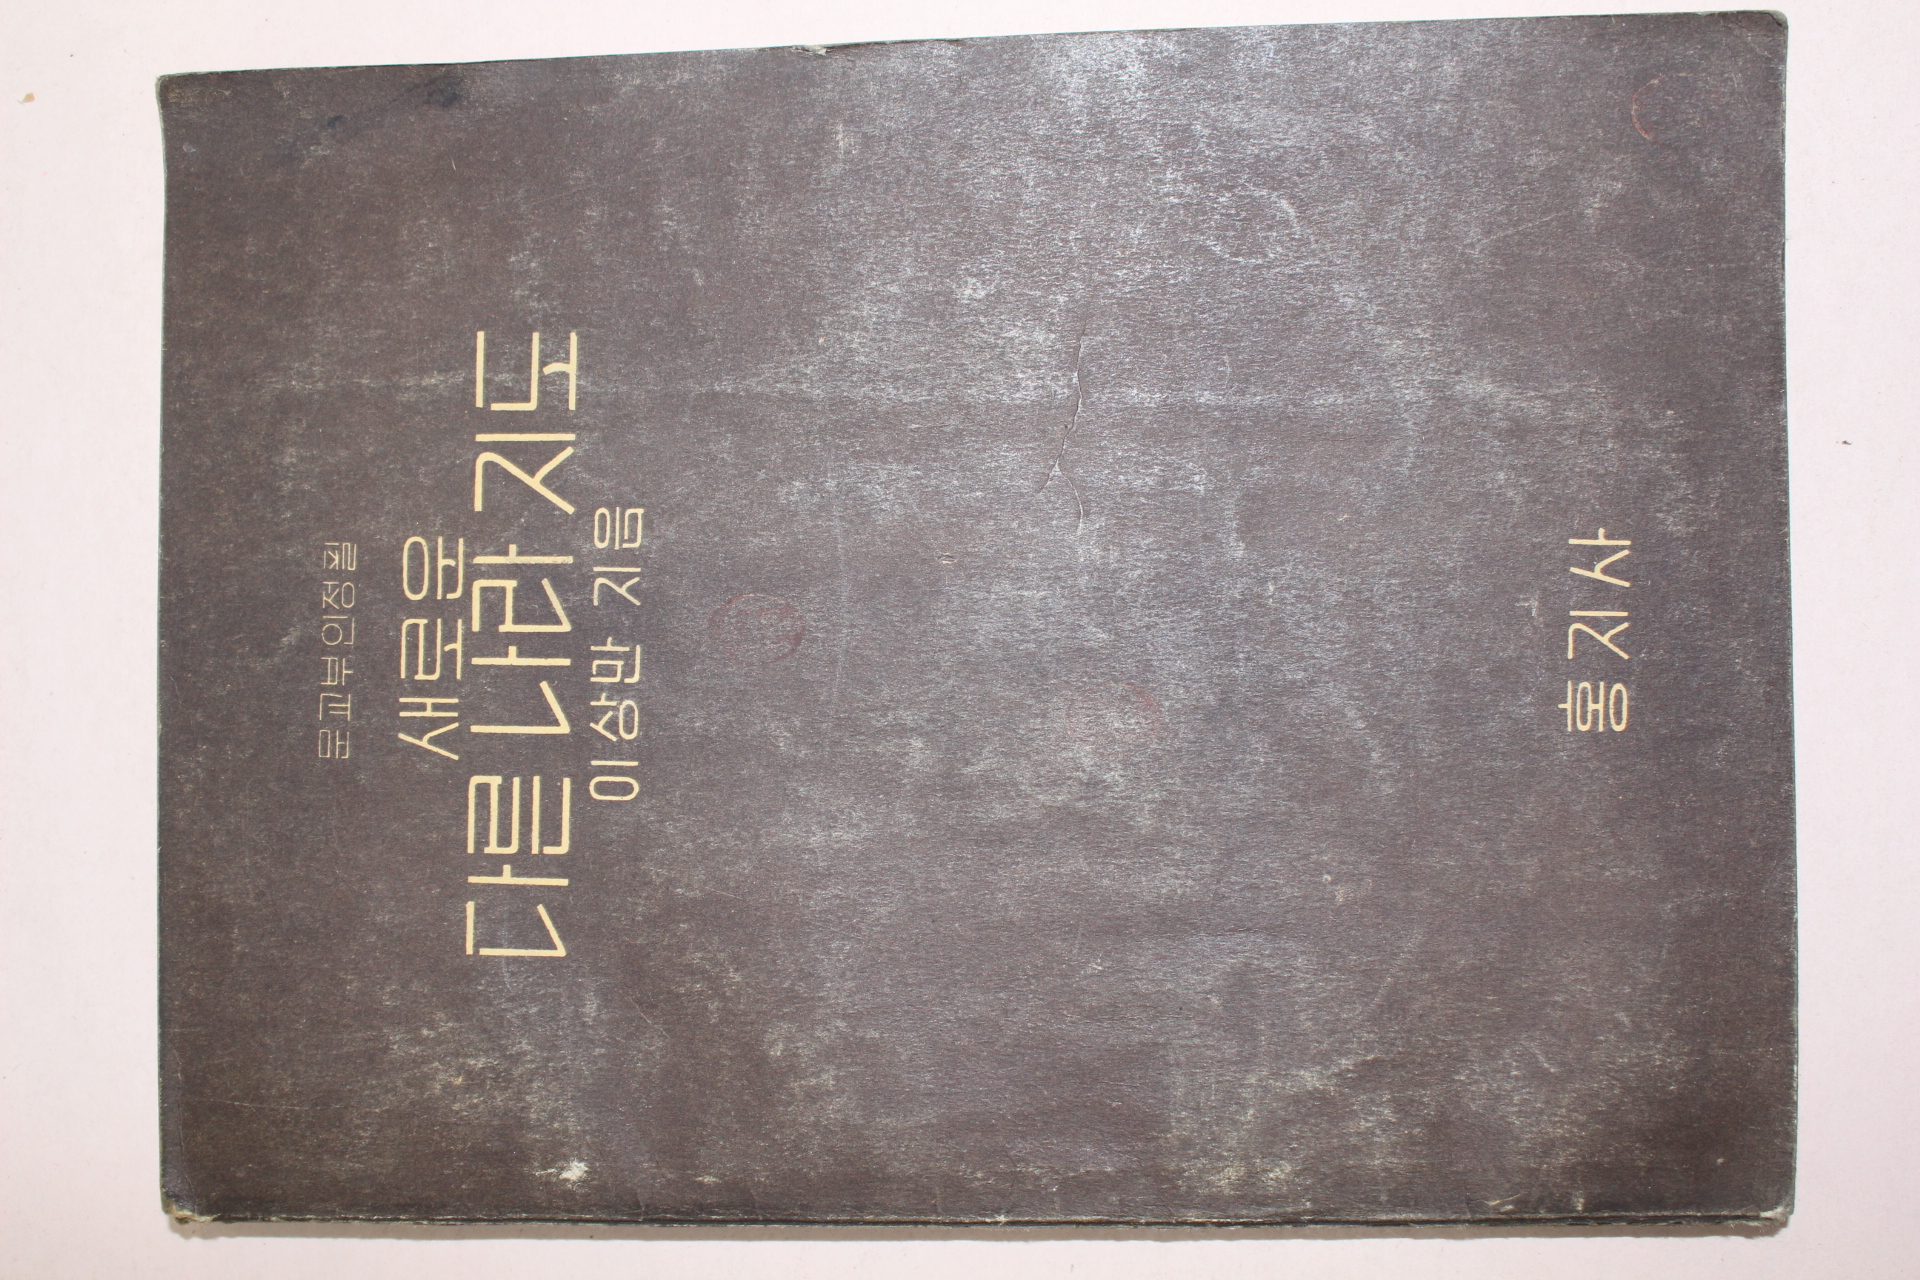 문교부인정필
새로운
다른 나라 지도
이상만 지음
홍지사